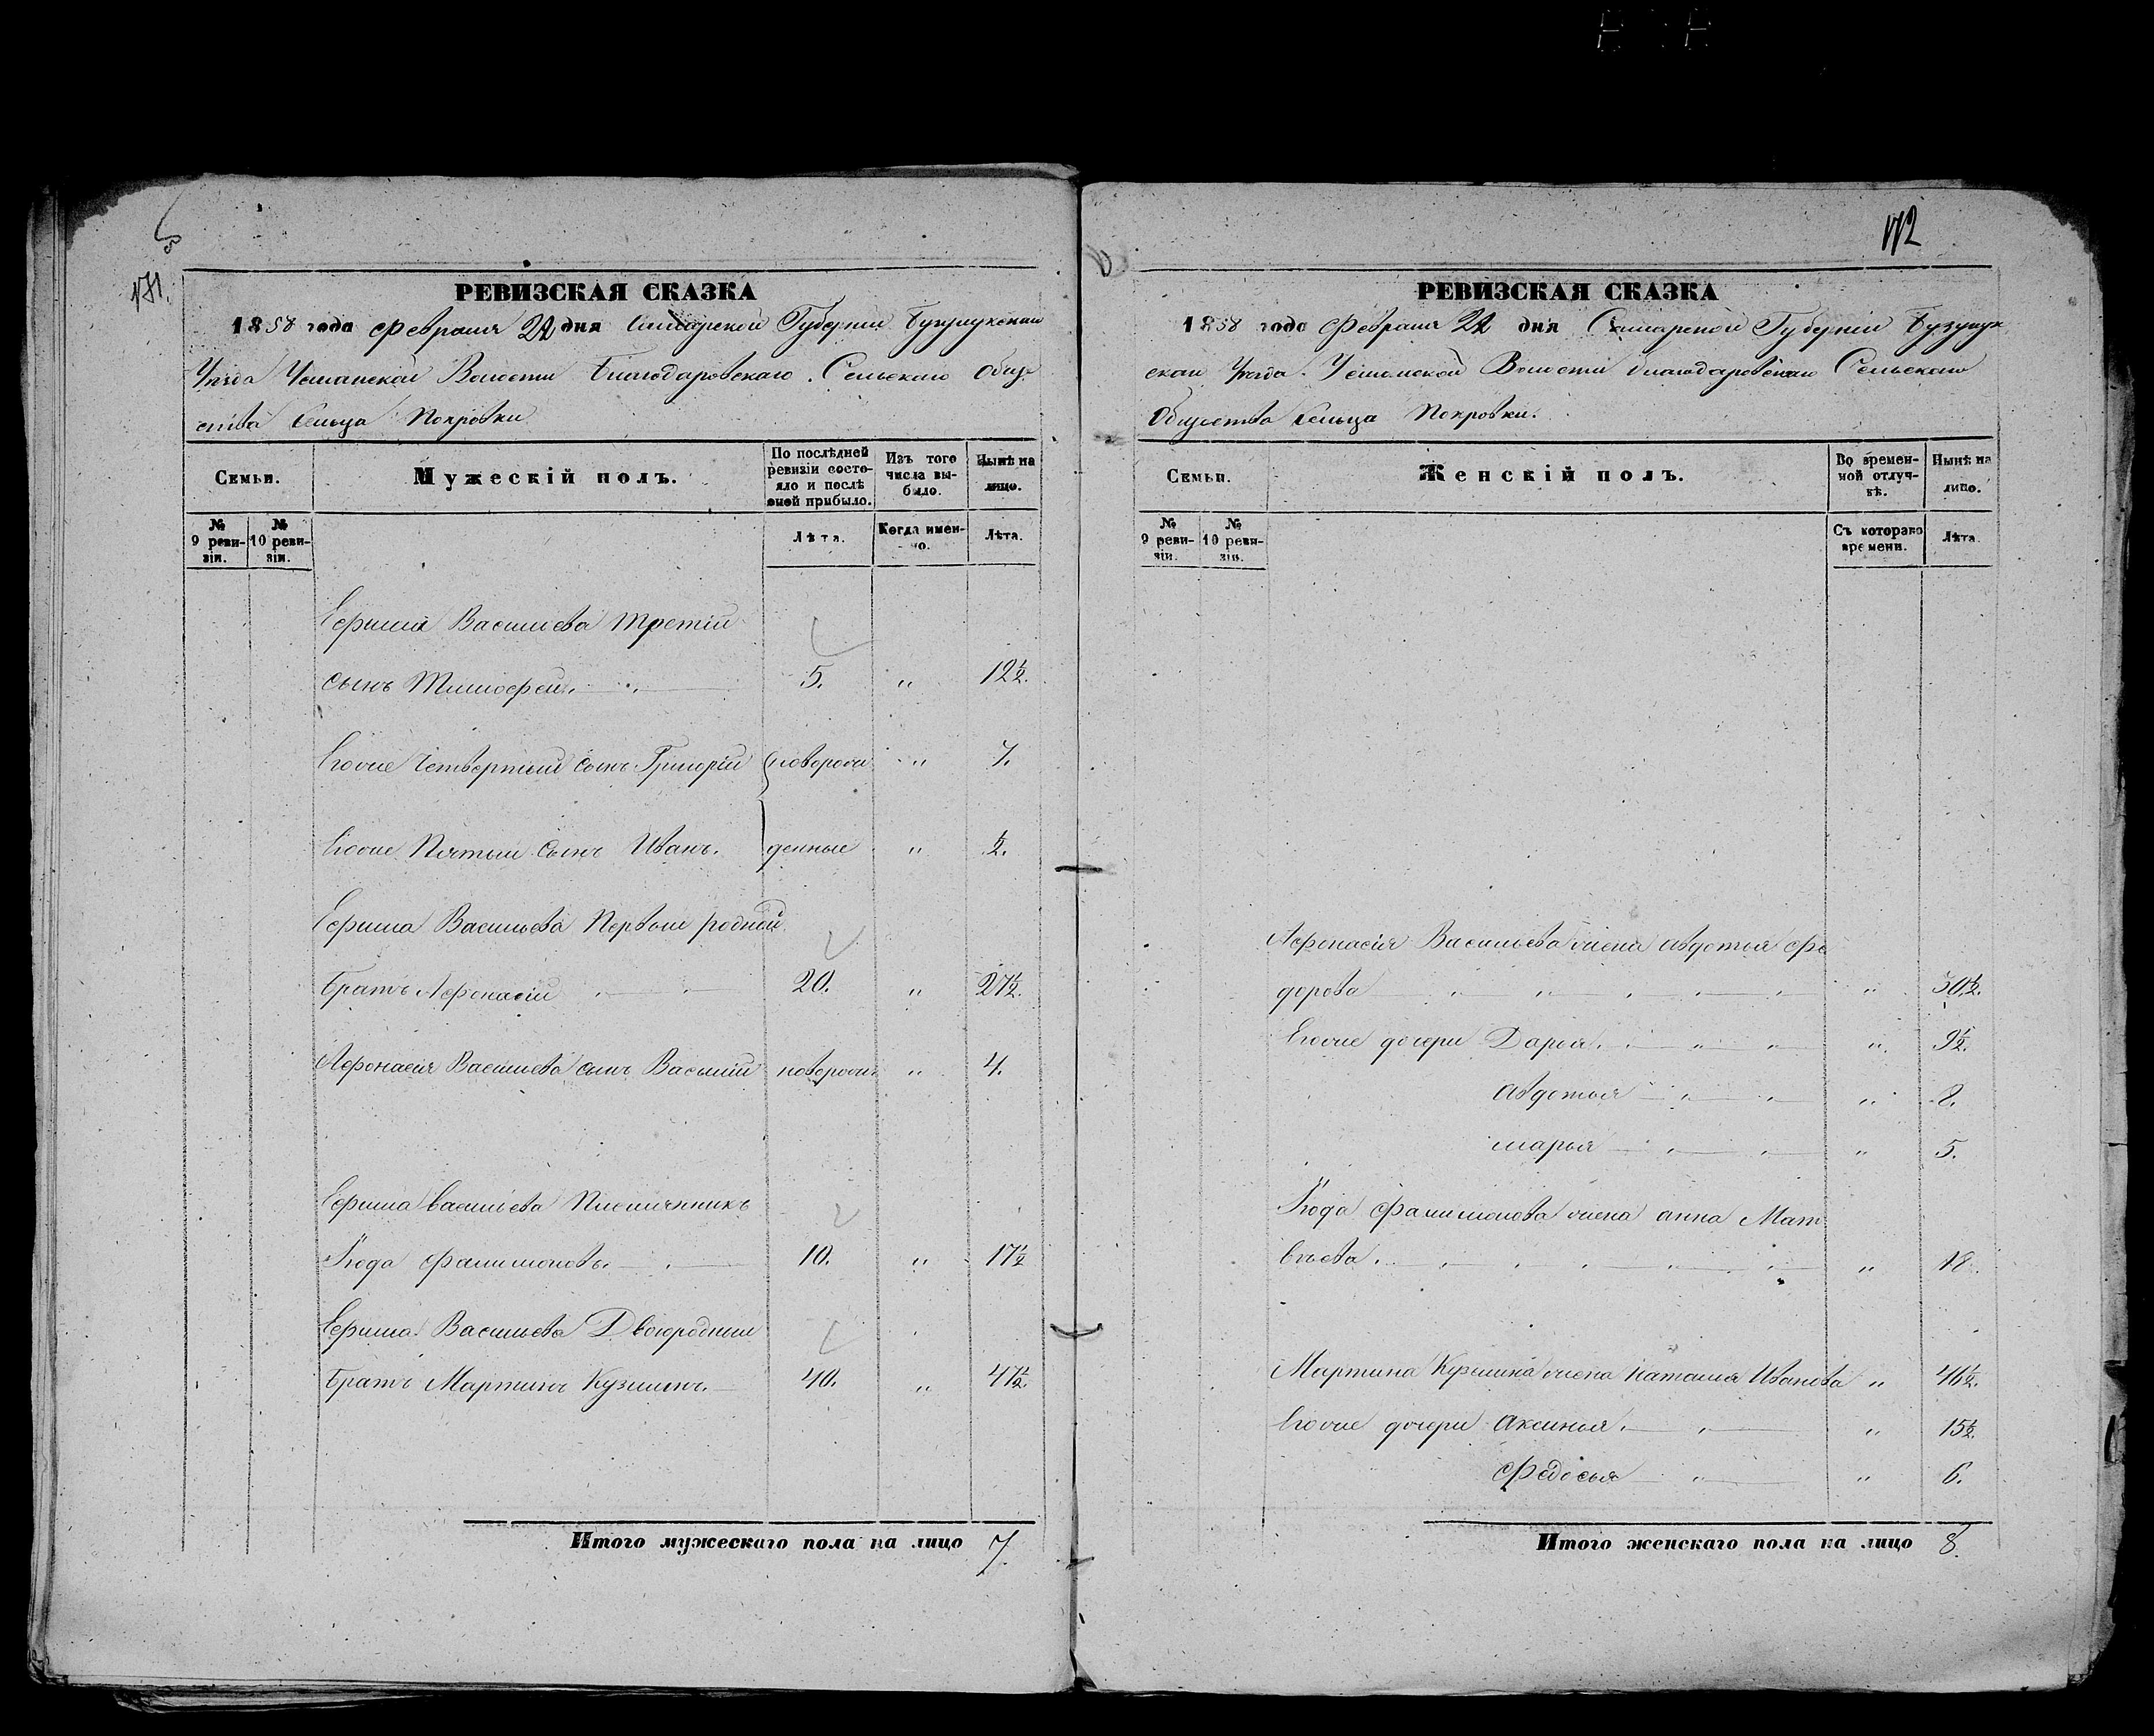 171.
РЕВИЗСКАЯ СКАЗКА
1858 года Февраля 22 дня Самарской Губернии Бузулукскаго
Уѣзда Волости Благодаровскаго Сельскаго Обще
ства Сельца Покровки
Семьи.
Мужескій полъ.
По послѣдней ревизіи состо-
яло и послѣ оной прибыло.
Изъ того числа вы-
было.
Нынѣ на лицо.
№ 9 реви-
зіи.
№ 10 реви-
зіи.
Лѣта.
Когда имен-
но.
Лѣта.
Ефима Васильева третій
сынъ Тимофей. 5. „ 12½.
Егоже Четвертый сынъ Григорій новорож „ 7.
Егоже Пятый сынъ Иванъ. денные „ ½.
Ефима Васильева Первый родной
Братъ Афонасій 20. „ 27½.
Афонасія Васильева сынъ Василий новорож. „ 4.
Ефима Васильева Племянникъ
Филимоновъ. 10. „ 17½
Ефима Васильева Двоюродный
Братъ Мартинъ Кузминъ. 40. „ 47½.
Итого мужескаго пола на лицо 7.
172
РЕВИЗСКАЯ СКАЗКА
1858 года Февраля 22 дня Самарской Губерніи Бузулук
скаго Уѣзда Волости Благодаровскаго Сельскаго
Общества Сельца Покровки.
Семьи.
Женскій полъ.
Во времен-
ной отлуч-
кѣ.
Нынѣ на лицо.
№ 9 реви-
зіи.
№ 10 реви-
зіи.
Съ котораго времени.
Лѣта.
Афонасія Васильева жена Авдотья Фе
дорова „ 30½.
Егоже дочери Дарья. „ 9½.
Авдотья „ 8.
Марья „ 5.
Филимонова жена Анна Мат
вѣева. „ 18.
Мартина Кузмина жена Наталия Иванова „ 46½.
Егоже дочери Аксинья. „ 15½.
Федосья „ 6.
Итого женскаго пола на лицо 8.